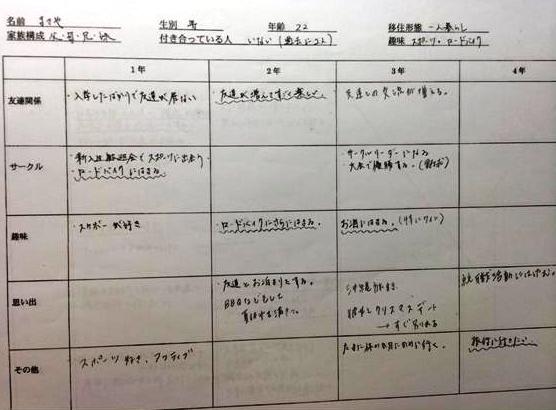 名前 まさや 生別 男 年齢 22 移住形態 一人暮らし
家族構成 父・母・兄・妹 付き合っている人 いない(過去に2人) 趣味 スポーツ・ロードバイク
1年 2年 3年 4年
友達関係 ・入学したばかりで友達が居ない ・友達が増えてすごく楽しい。 友達との交流が増える。
サークル ・新入生歓迎会でスポーツに出会う
・ロードバイクにはまる。
サークルリーダーになる
大会で優勝する。
趣味 ・スポーツが好き ・ロードバイクにさらにはまる。 お酒にはまる。(特にワイン)
思い出 ・友達とお泊まりとする。
BBQなどもして
沖縄旅行
彼女とクリスマスデート
→すぐ別れる
就職活動
その他 スポーツ好き、アクティブ 旅行に行きたい。